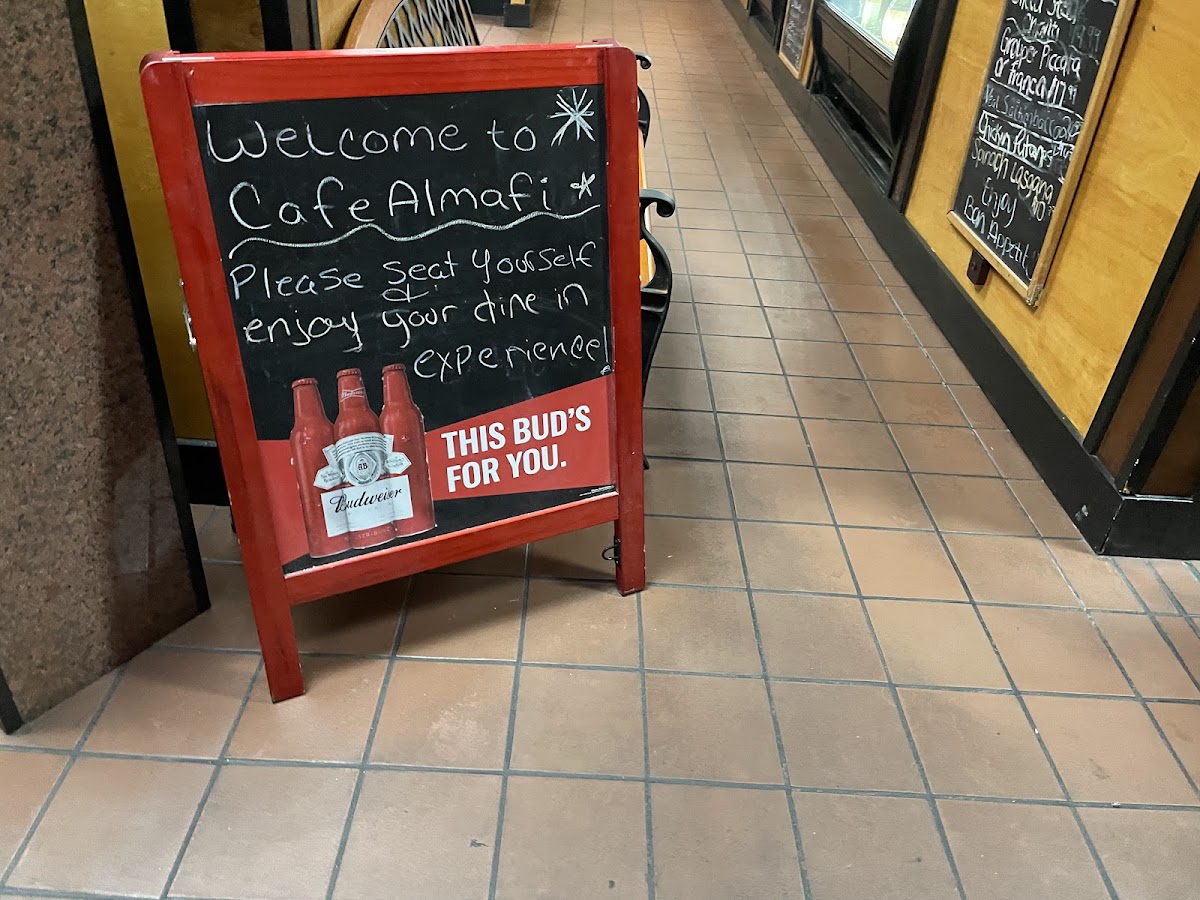 Welcome to
Cafe Almafi
Please seat yourself
&
enjoy your dine in
experience!
THIS BUD'S
FOR YOU.
Budweiser
Grouper Piccata
or franca $17.99
Chicken
Spinach Lasagna
Enjoy
Bon Appetit!